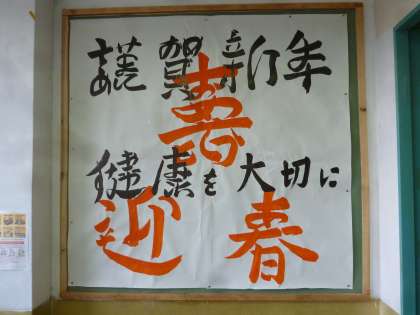 謹賀新年
寿
健康を大切に
迎春